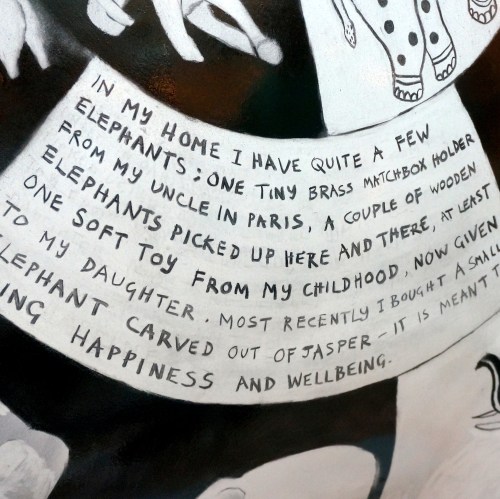 IN MY HOME I HAVE QUITE A FEW
ELEPHANTS; ONE TINY BRASS MATCHBOX HOLDER
FROM MY UNCLE IN PARIS, A COUPLE OF WOODEN
ELEPHANTS PICKED UP HERE AND THERE, AT LEAST
ONE SOFT TOY FROM MY CHILDHOOD, NOW GIVEN
TO MY DAUGHTER. MOST RECENTLY I BOUGHT A SMALL
LEPHANT CARVED OUT OF JASPER - IT IS MEANT
ING HAPPINESS AND WELLBEING.